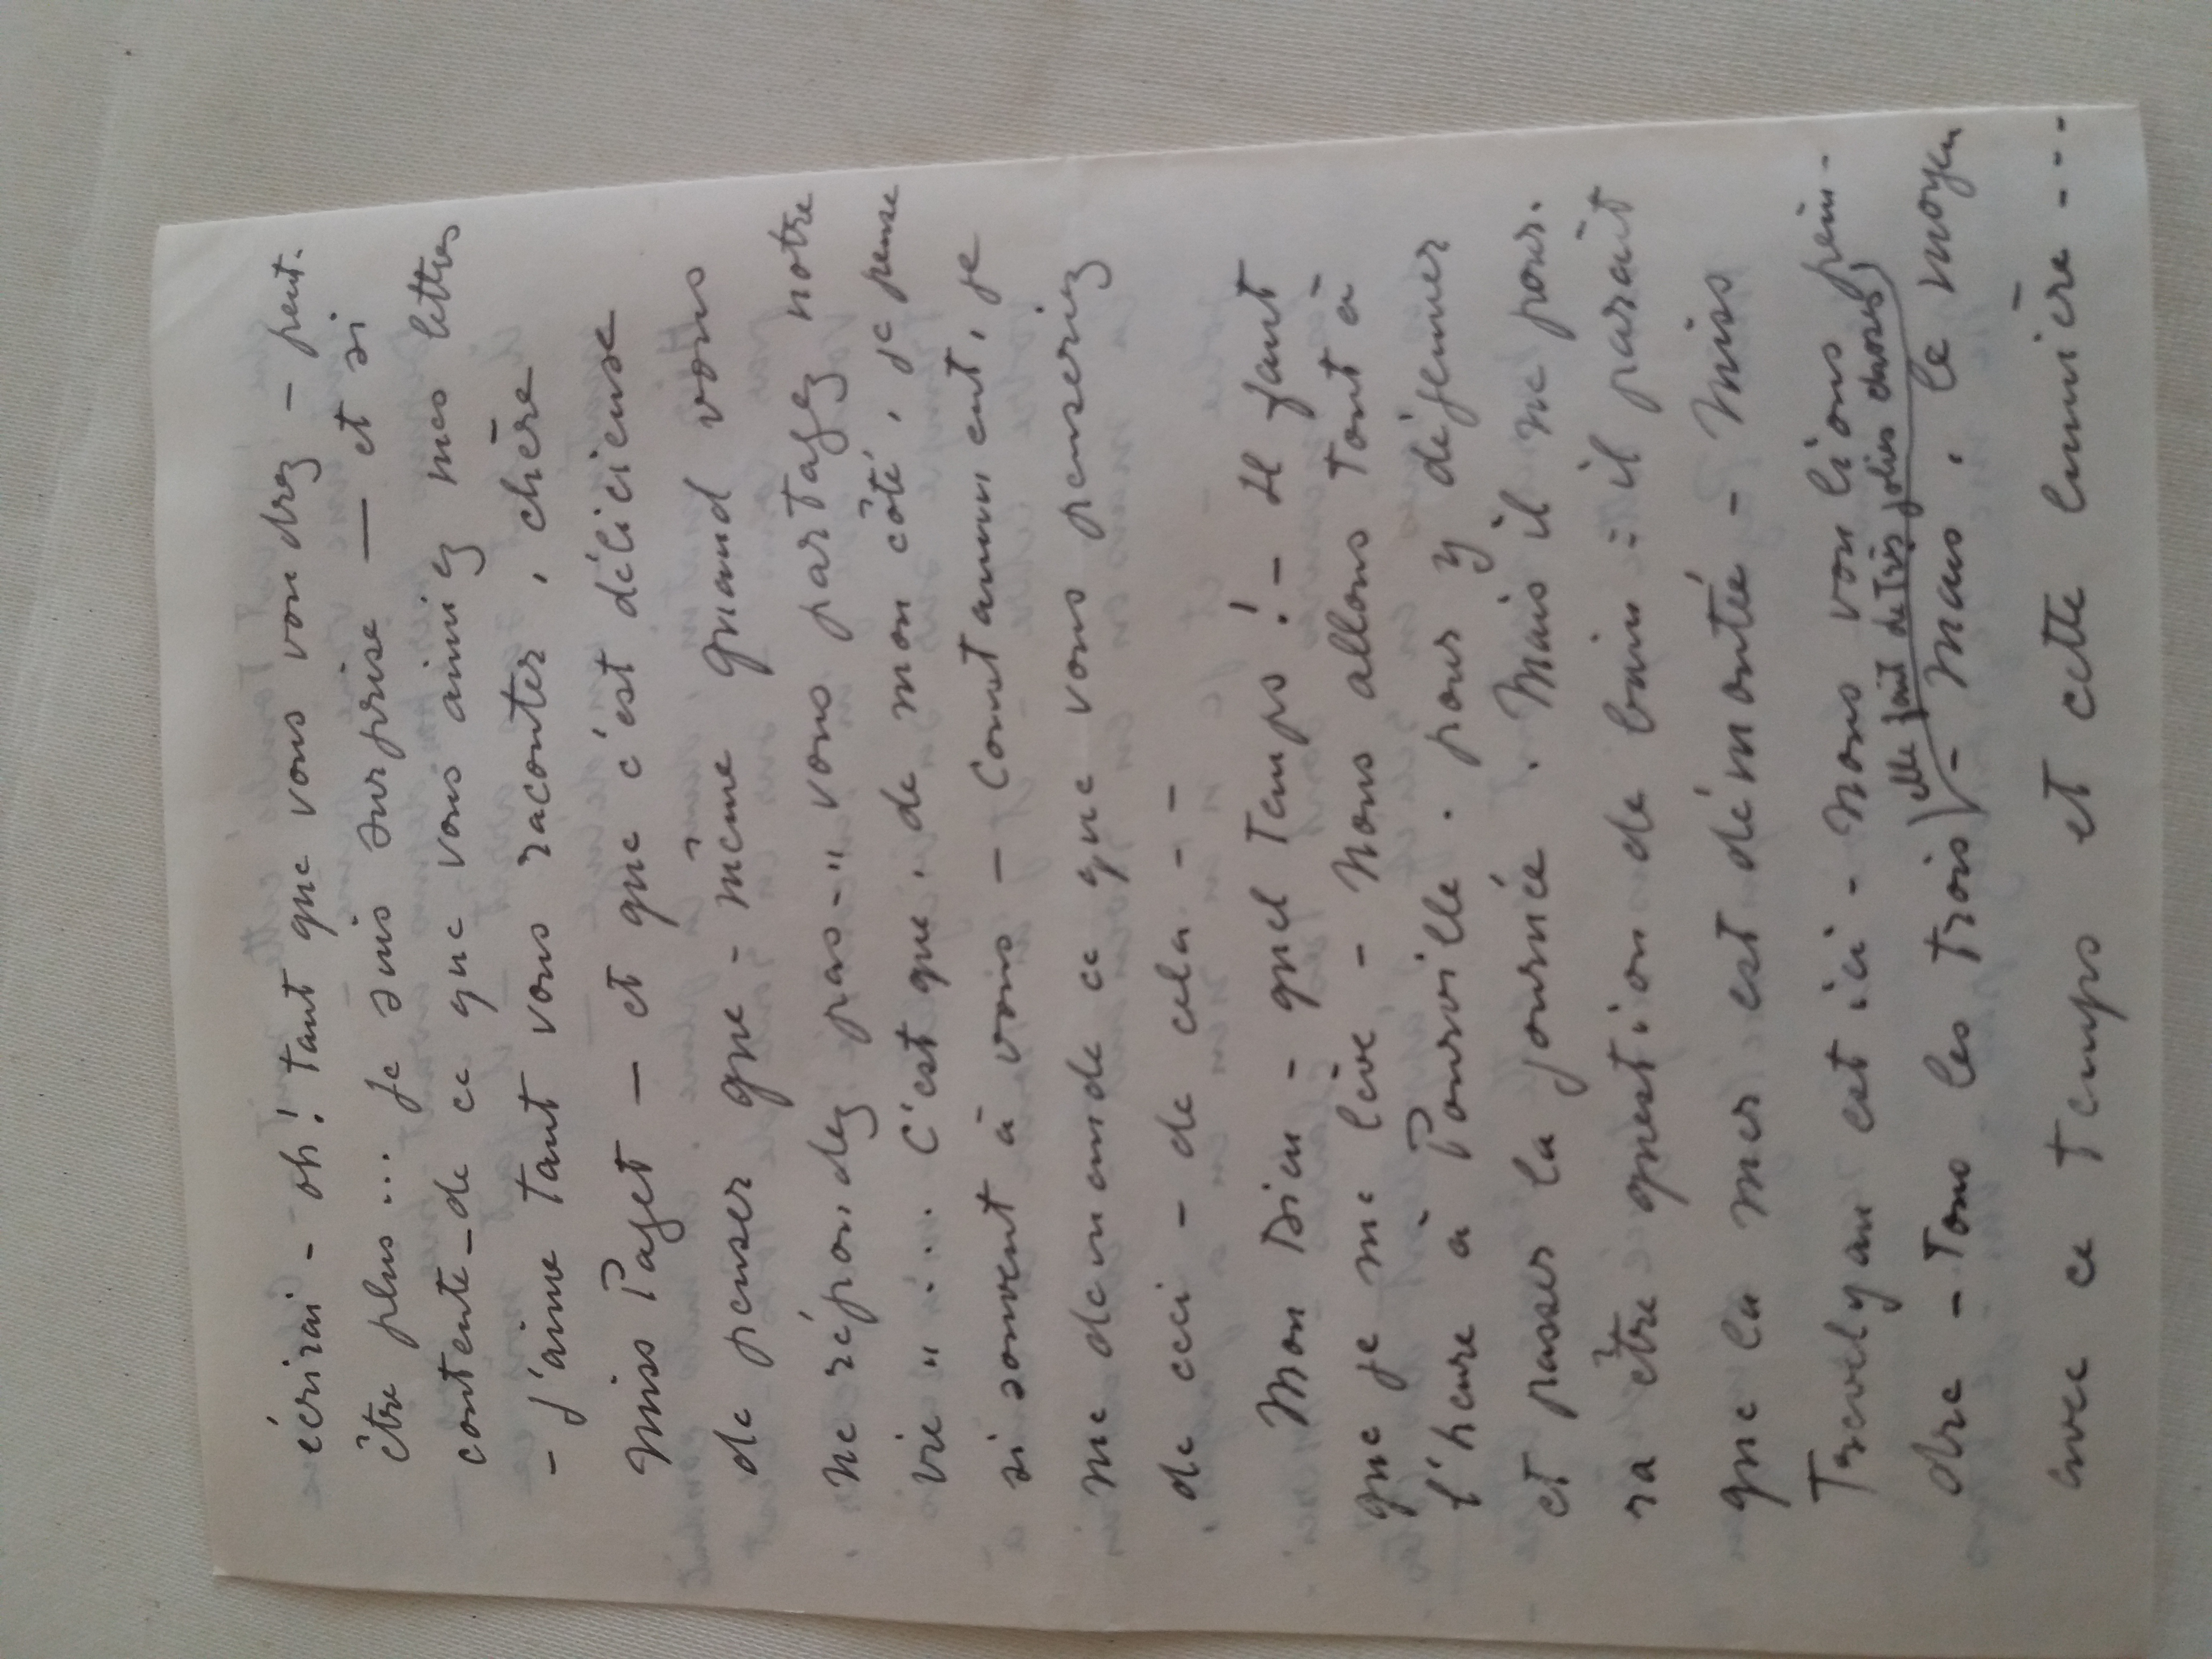 écrirai - oh! tant que vous voudrez - peut-
être plus... je suis surprise — et si
contente - de ce que vous aimiez mes lettres
- j'aime tant vous raconter, chère
Miss Paget — et que c'est délicieuse
de penser que - même quand vous
ne répondez pas - " vous partagez notre
vie "... C'est que, de mon côté, je pense
si souvent à vous - constamment, je
me demande ce que vous penseriez
de ceci - de cela - -
Mon Dieu - quel temps ! - Il faut
que je me lève - Nous allons tout à
l'heure à Pourville . pour y déjeuner
et passer la journée . Mais il ne pour-
ra être question de bain : il paraît
que la mer est démontée - Miss
Trevelyan est ici - Nous voulions pein-
(elle fait de très jolies choses)
dre - tous les trois - Mais, le moyen
avec ce temps et cette lumière ---